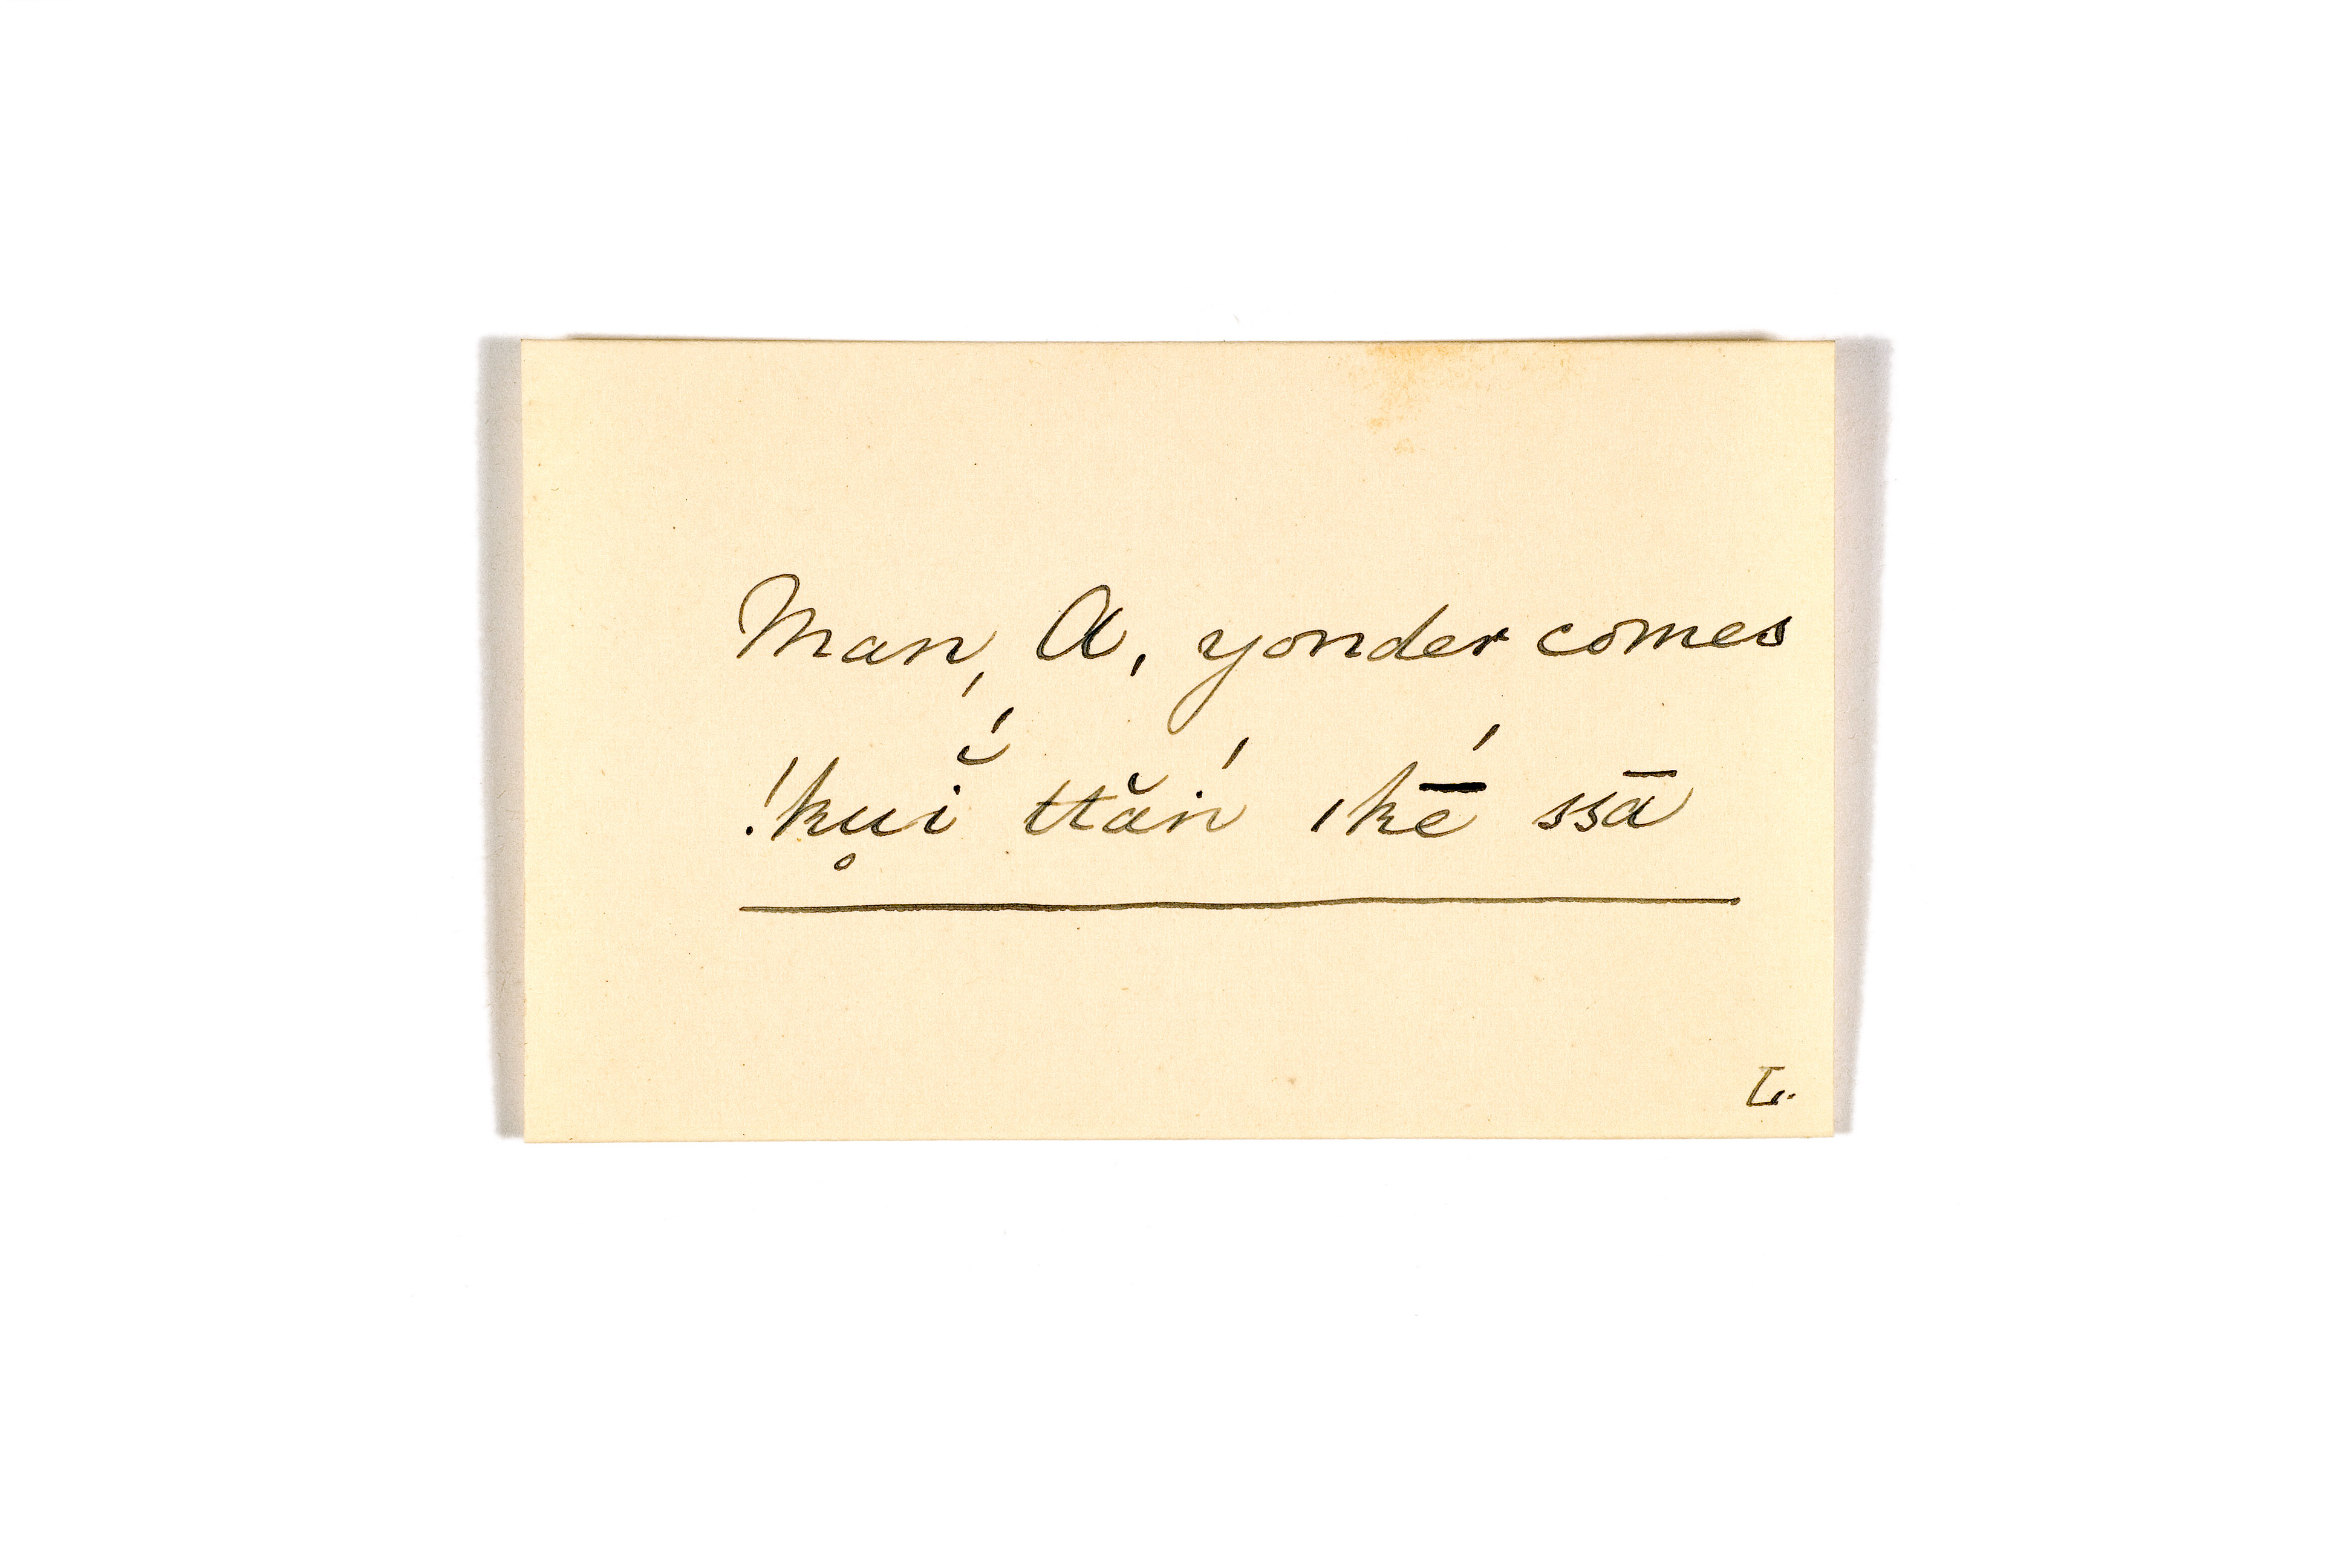 Man, A, yonder comes
!kụ̊ĭ́ ttăń ıkḗ ssā
L.